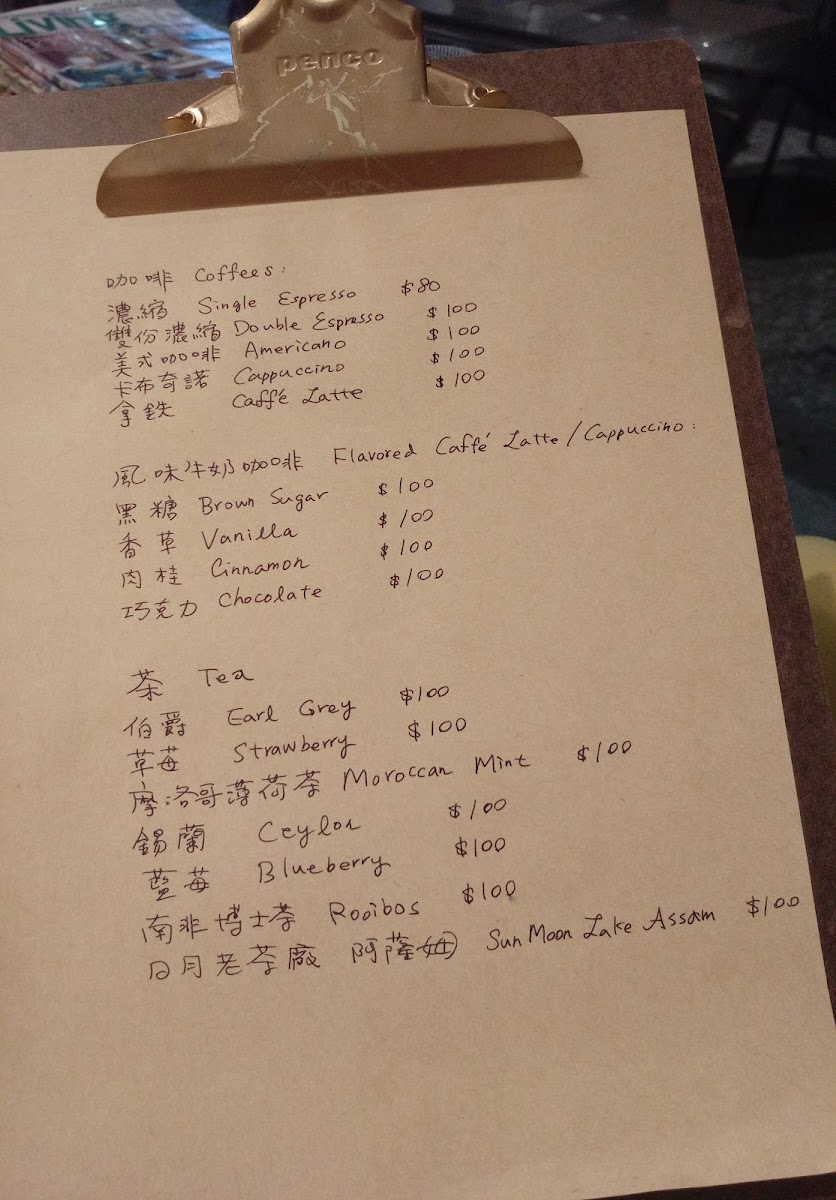 Living
penco
咖啡 Coffees:
濃縮 Single Espresso $80
雙份濃縮 Double Espresso $100
美式咖啡 Americano $100
卡布奇諾 Cappuccino $100
拿鉄 Caffé Latte $100
風味牛奶咖啡 Flavored Caffé Latte/Cappuccino:
黑糖 Brown Sugar $100
香草 Vanilla $100
肉桂 Cinnamon $100
巧克力 Chocolate $100
茶 Tea
伯爵 Earl Grey $100
草莓 Strawberry $100
摩洛哥薄荷茶 Moroccan Mint $100
錫蘭 Ceylon $100
藍莓 Blueberry $100
南非博士茶 Rooibos $100
日月老茶廠 阿薩姆 Sun Moon Lake Assam $100